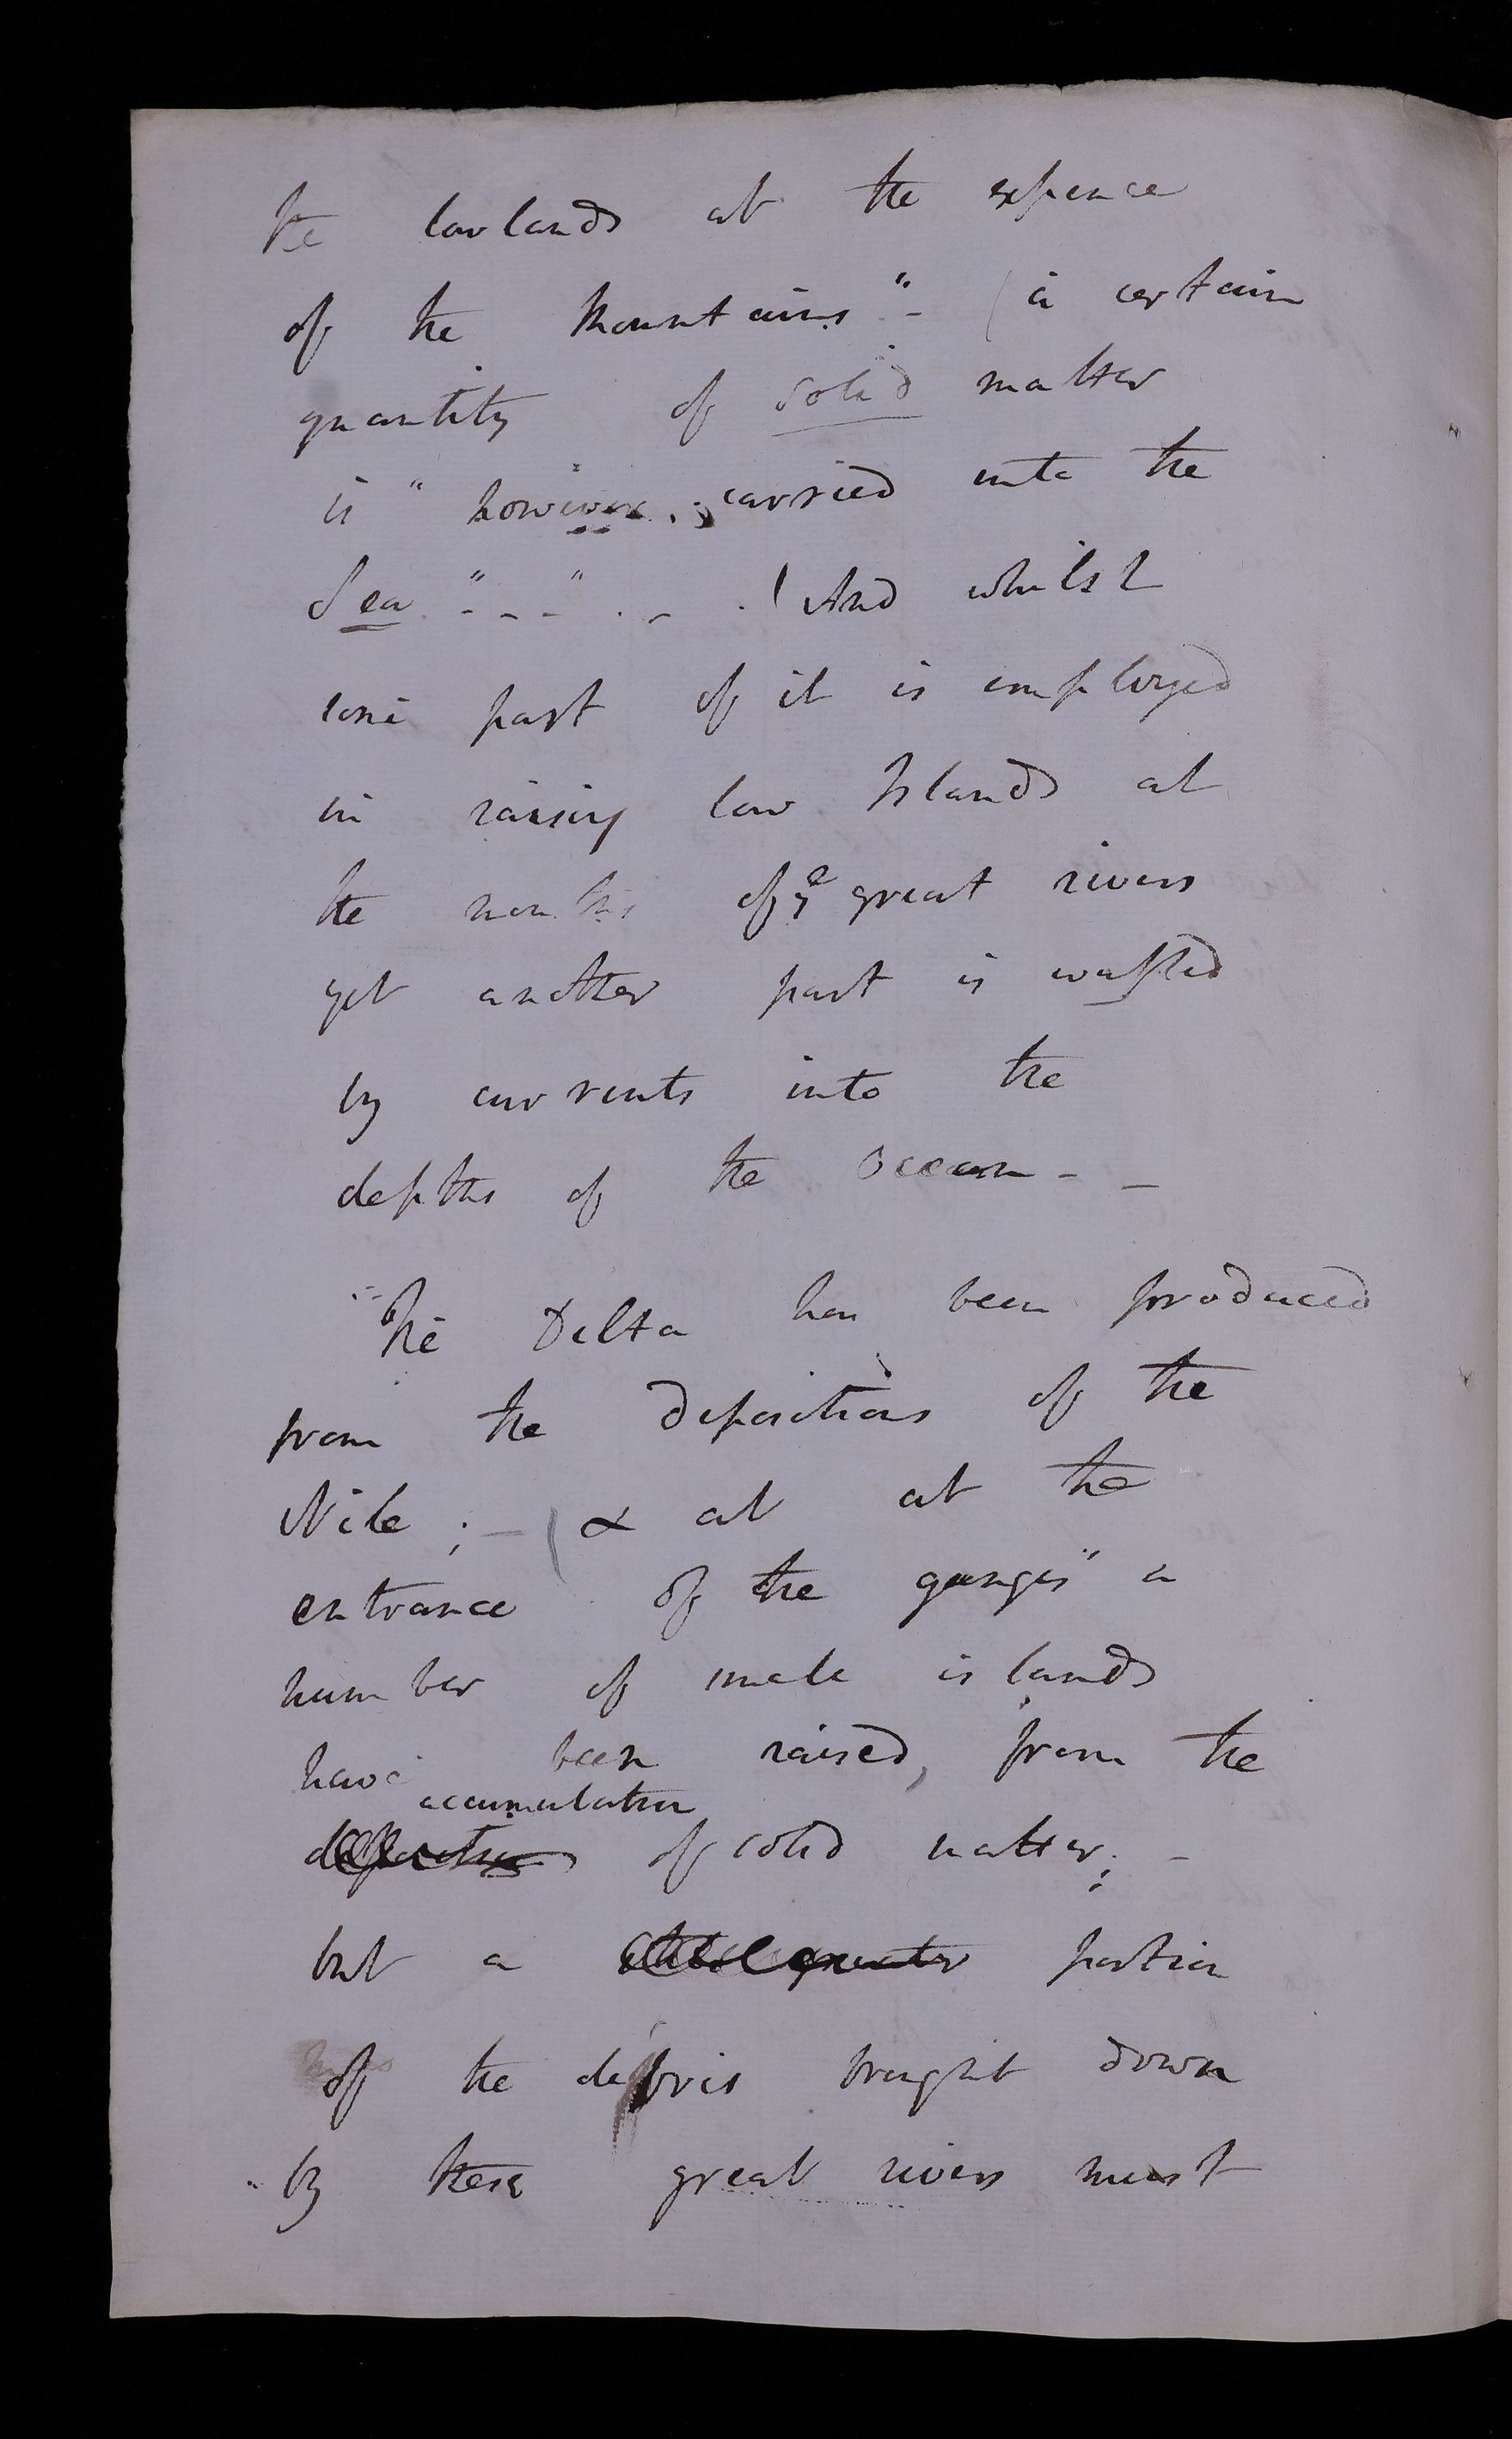 the lowlands at the expence
of the Mountains" - (a certain
quantity of solid matter
is " however carried into the
Sea " - - " - - ! And whilst
one part of it is employed
in raising low Islands at
the mouths of ye great rivers
yet another part is wafted
by currents into the
depths of the Ocean - -
"The Delta has been produced
from the depositions of the
Nile ; - ( & at at the
entrance of the ganges" a
number of islands
have been raised, from the
accumulation
of solid matter; -
but a still greater portion
of the debris brought down
by these great rivers must